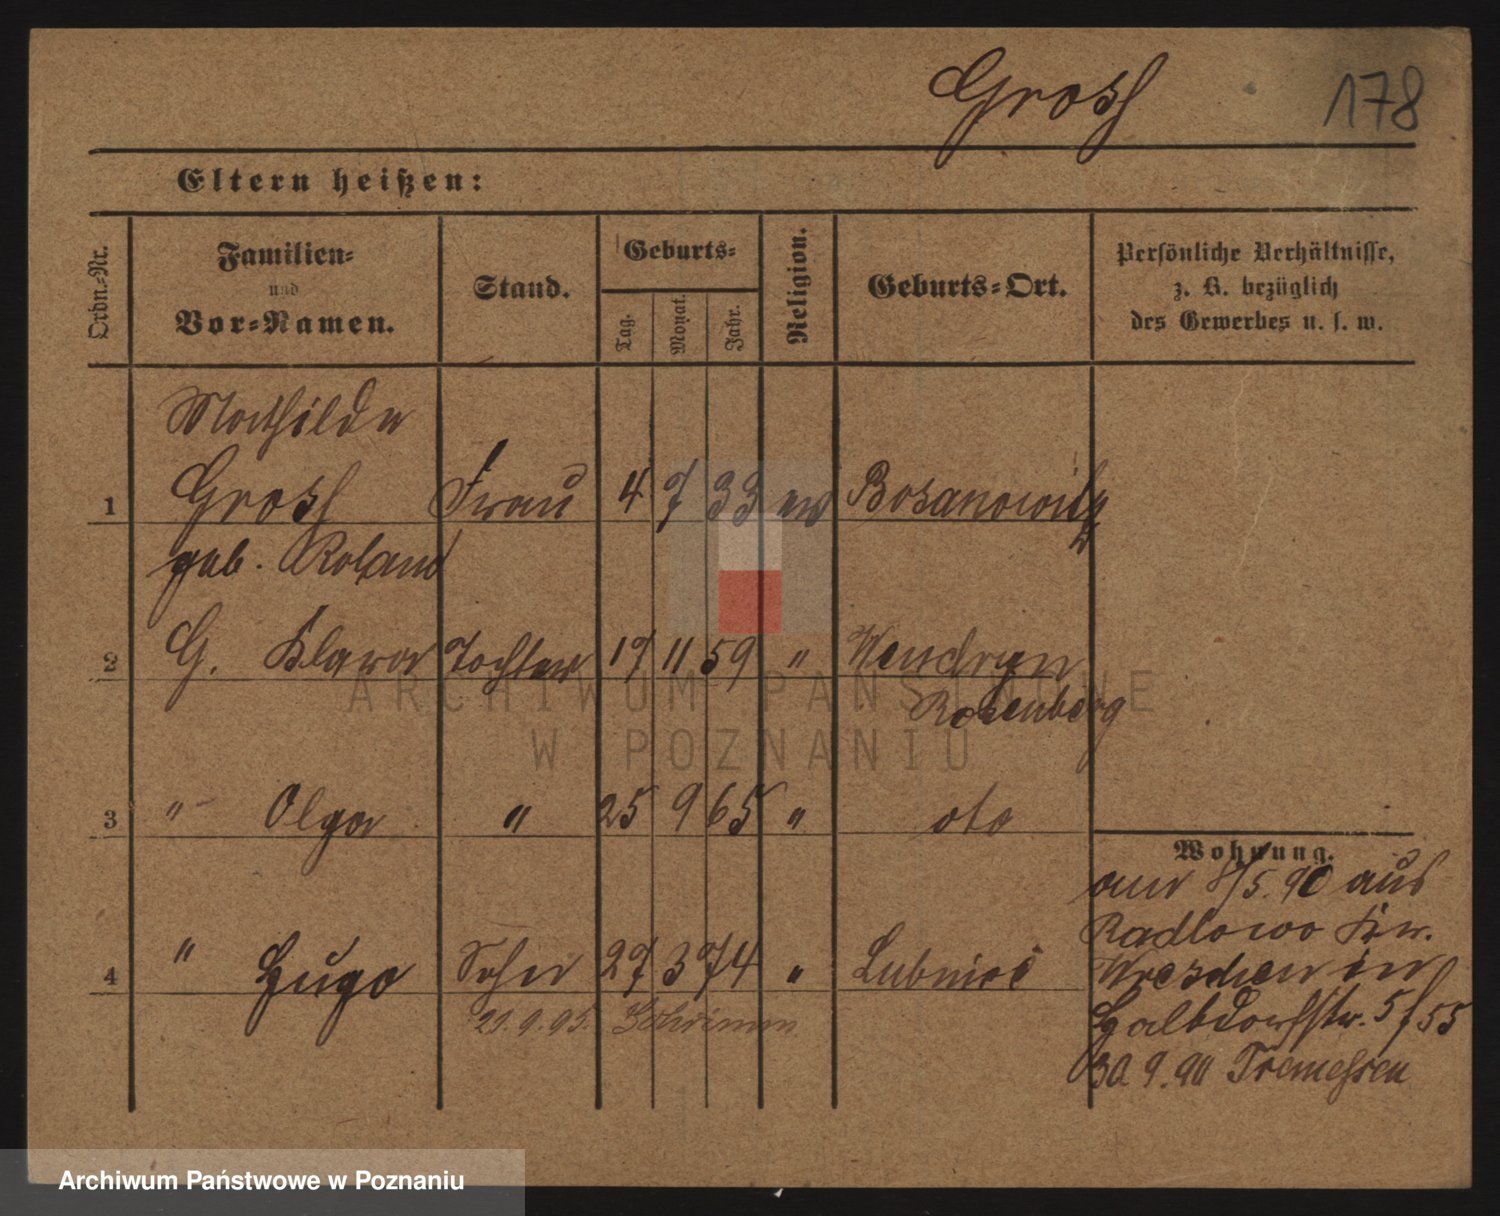 Grosh
178
Eltern heißen:
Ordn.-Nr.
Familien-
und
Vor-Namen.
Stand.
Geburts-
Tag.
Monat.
Jahr.
Religion.
Geburts-Ort.
Persönliche Verhältnisse,
z. B. bezüglich
des Gewerbes u. s. w.
Mathilde
1 Grosh Frau 4 7 33 ev Bosanowitz
geb. Roland
2 G. Klara Tochter 17 11 59 " Wendryn
Rosenberg
3 " Olga " 25 9 65 " dto
Wohnung.
am 8/5. 90 aus
Radlowo Kr.
4 " Hugo Sohn 27 3 74 "
Wreschen in
21. 9. 95.
Halbdorfstr. 5 f 55
30. 9. 90 Tremessen
ARCHIWUM PAŃSTWOWE
W POZNANIU
Archiwum Państwowe w Poznaniu